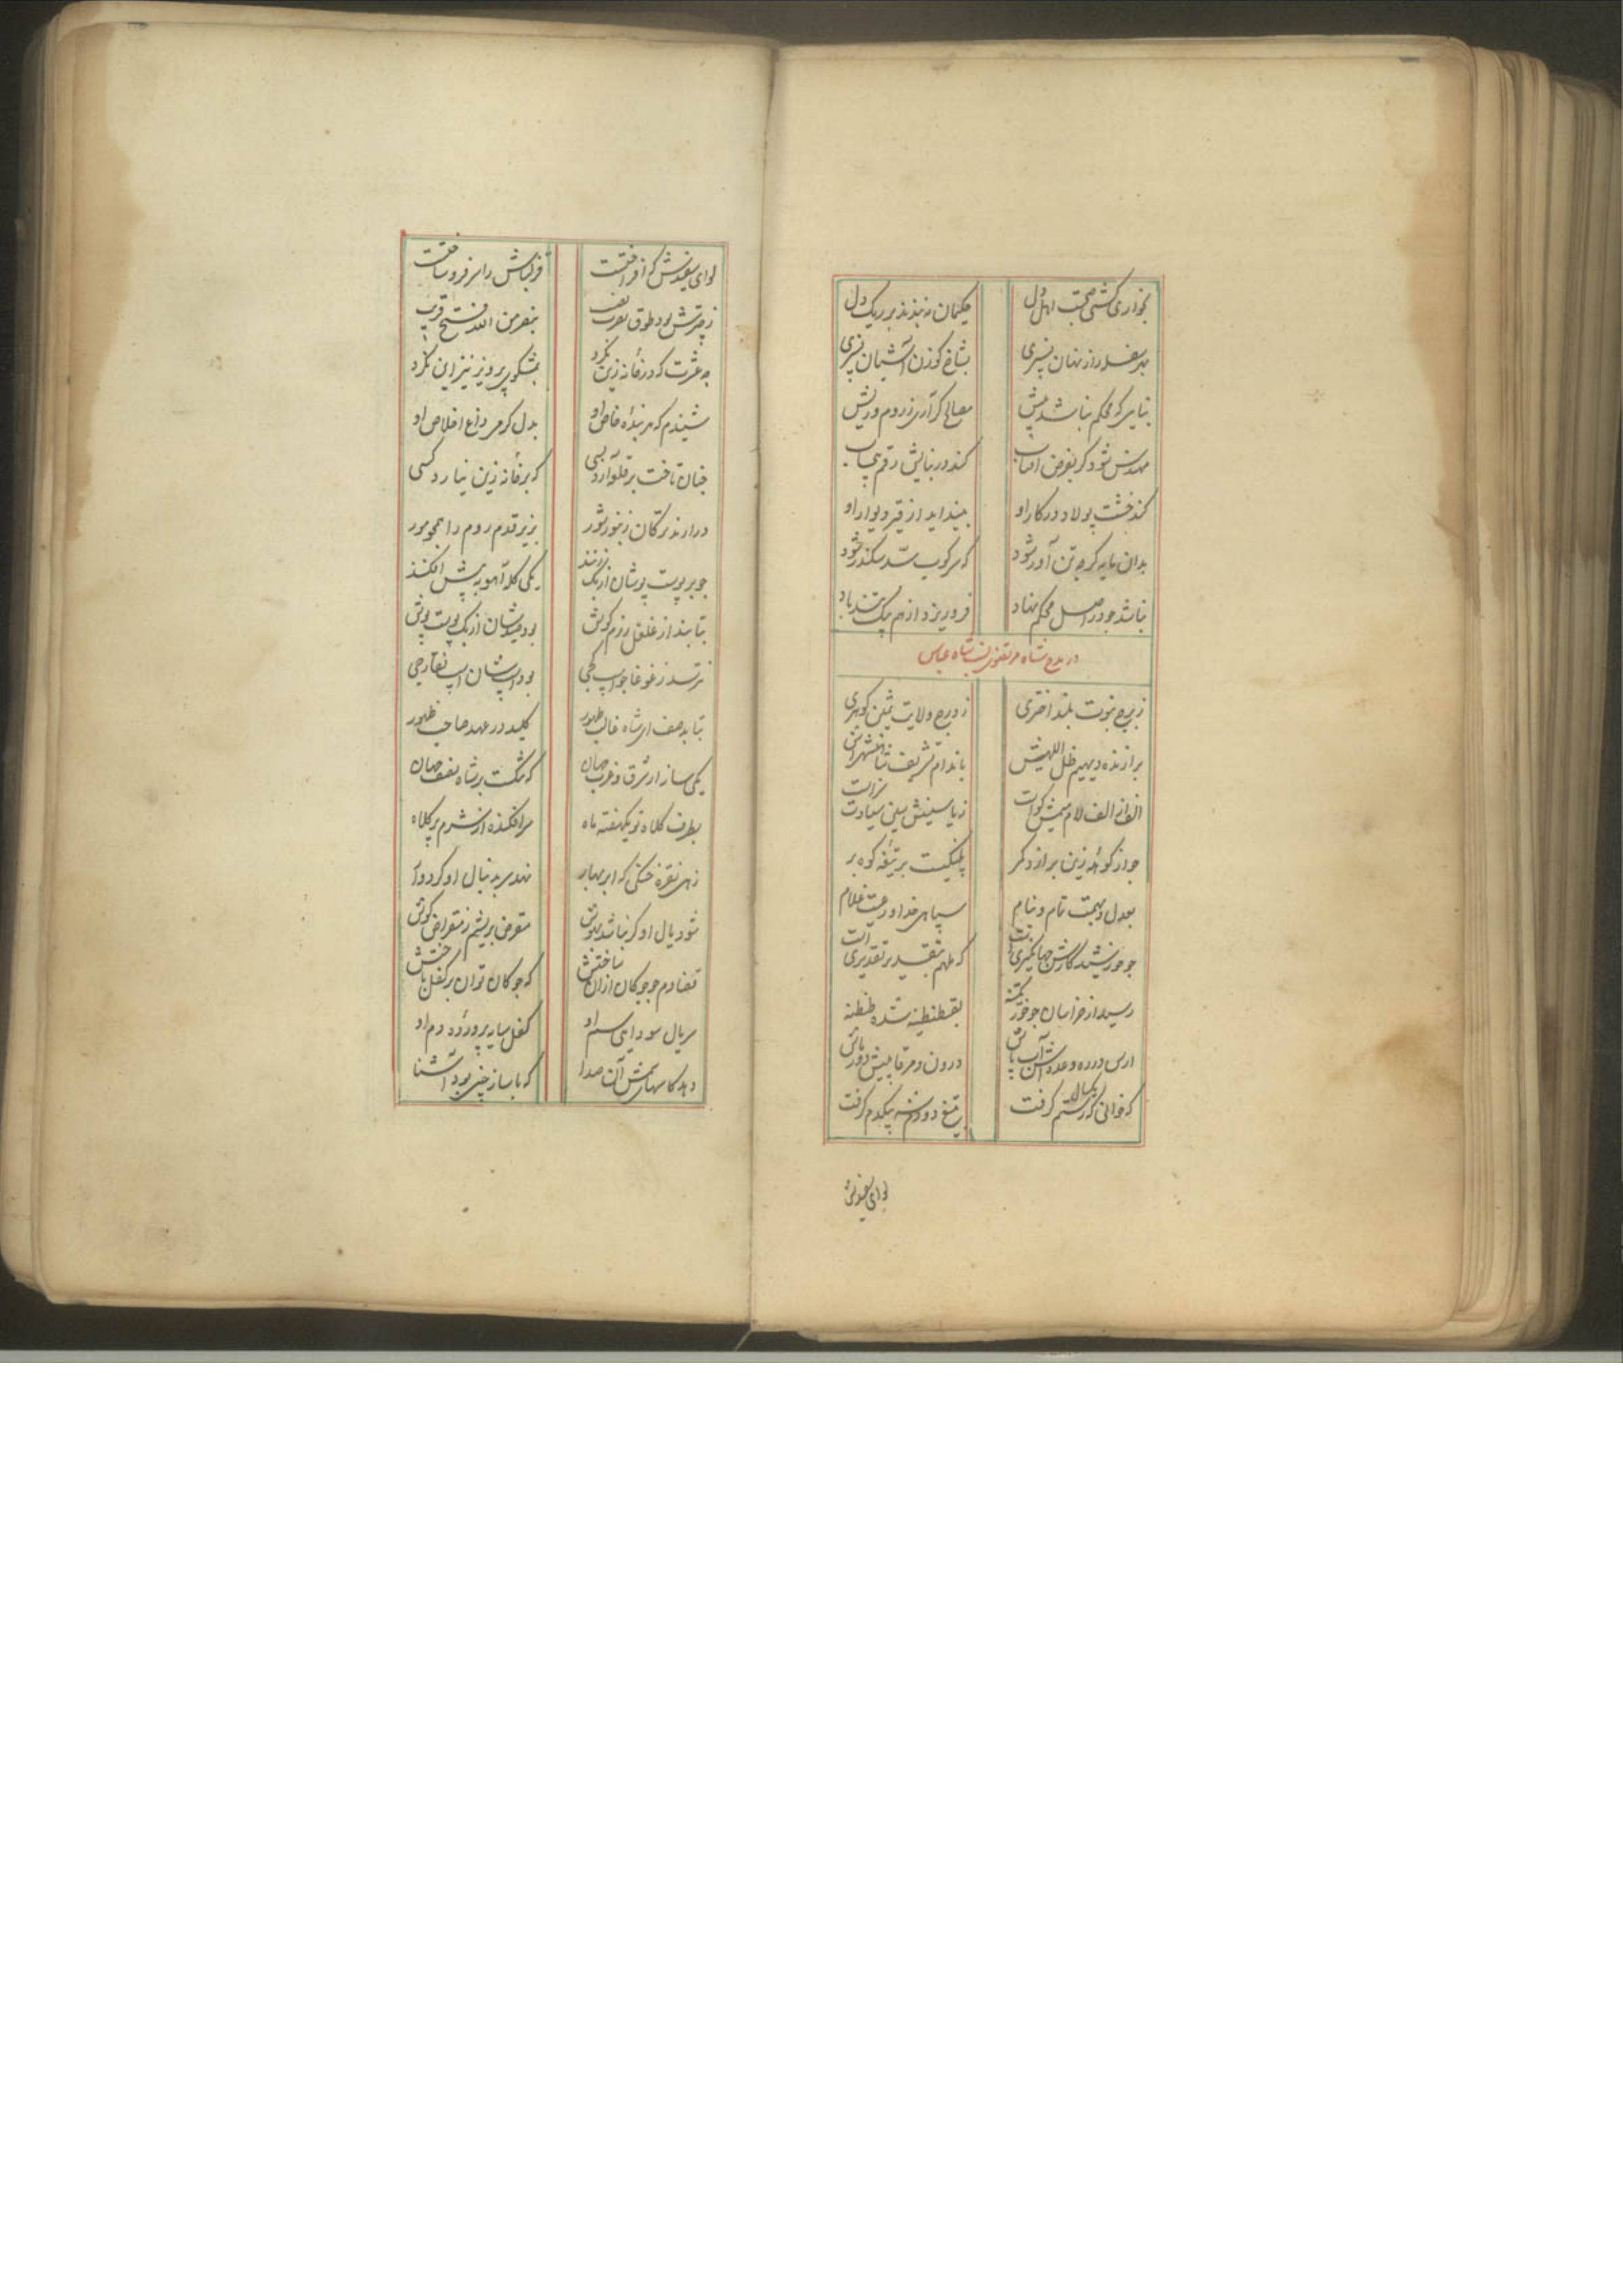 بخواری کشی صحبت اهل دل
حکیمان نه بندند بر ریک دل
بهر سفله راز نهان نسپری
بشاخ کوزن آشیان نسپری
بنایی که محکم نباشد پیش
مصالح کر آری ز روم و ریش
مهندس شود کر بفرض افتاب
کند در بنایش رقم
کند خشت پولاد در کار او
بینداید از قیر دیوار او
بدان پایه کرچه تن آور شود
که سرکوب سد سکندر شود
نباشد چو در اصل محکم نهاد
فرو ریزد از هم بیک تندباد
در مدح شاه مرتضوی نسب شاه عباس
ز برج نبوت بلند اختری
ز درج ولایت ثمین کوهری
برازنده دیهیم ظل اللهیش
باندام تشریف شاهنشهیش
الف لام میمش کواست
ز یاسینش سین سیادت سزاست
چو از کوهه زین برآرد کمر
پلنکیست بر تیغه کوه بر
بعدل و بهمت تمام و تمام
سپاهی خدا و رعیت غلام
چو خورشید کارش جهانکیری است
که ملهم بتقدیری است
رسید از خراسان چو خور یکتنه
بقسطنطنیه شده طنطنه
ارس در ره وعده اش آب پاش
درون و مرقا پیش دورباش
که خوانی که رستم بکسال کرفت
بتیغ دو دم شه بیکدم کرفت
لوای سفیدش
لوای سفیدش که افراخت
قزلباش را سرفرو ساخت
ز چترش بود طوق نصرت
بنصر من الله فتح قریب
چه عشرت که در خانه زین نکرد
بمشکوی پرویز نیز این نکرد
شنیدم که هر بنده خاص او
بدل کرمی داغ اخلاص او
چنان تاخت بر قلب آرد بسی
که بر خانه زین نیارد کسی
درآرند ترکان زنبور شور
بزیر قدم روم را همچو مور
چو بر پوست پوشان ازبک زنند
یکی کله آهو به پیش افکنند
نتابند از غلغل رزم کوش
بود صیدشان ازبک پوست پوش
نترسد ز غوغا چو اسب کجی
بود اسبشان اسب نقارچی
نتابد صف از شاه غالب ظهور
کلید در عهد صاحب ظهور
یکی ساز از شرق و غرب جهان
که شکست بر شاه نصف جهان
بطرف کلاه تو یکهفته ماه
سرافکنده از شرم پر کلاه
زهی نقره خنکی که ابر بهار
نهد سر بدنبال او کرد وار
شود یال او کر نباشد بدوش
مقرض بریشم ز مقراض کوش
قضا دم چو چوکان ازان ساختش
که چوکان توان بر کفل باختش
سر یال سودایی سم او
کفل سایه پرورده دم او
دهد کاسهای سمش آن صدا
که با ساز چینی بود آشنا